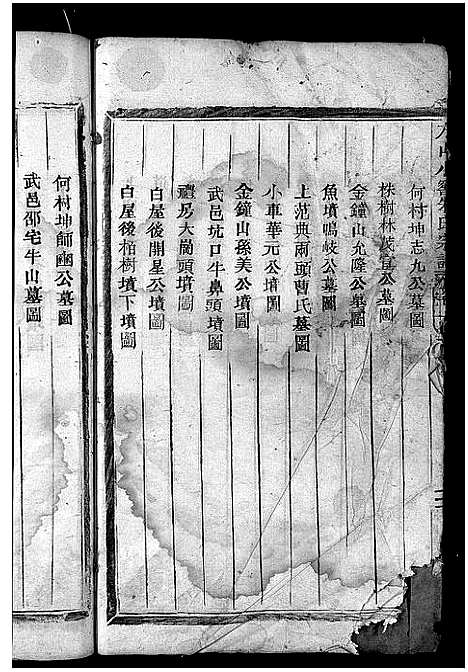 何村坤志九公墓圖
株樹林
金鐘山允隆公墓圖
魚墳鳴岐公墓圖
上范典兩頭曹氏墓圖
小車華元公墳圖
金鐘山孫美公墳圖
武邑坑口牛鼻頭墳圖
大崗頭墳圖
白屋後開星公墳圖
白屋後柏樹墳下墳圖
何村坤師國公墓圖
武邑邵宅牛山墓圖